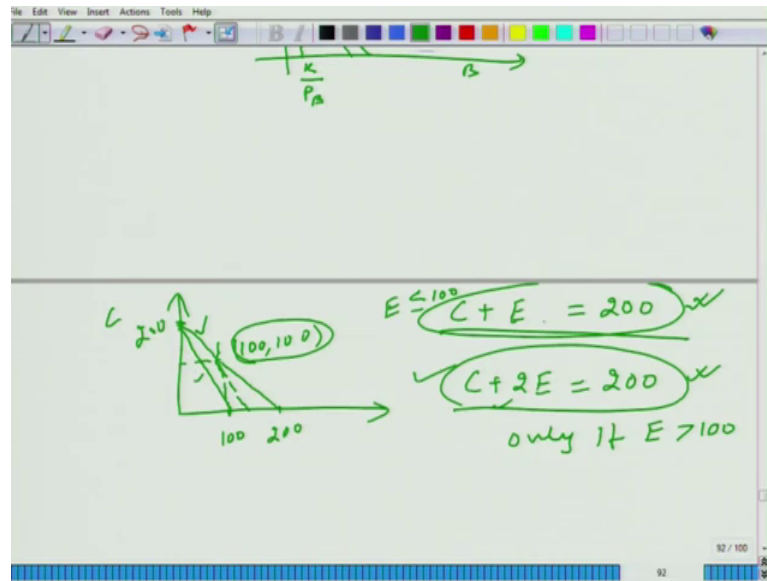 File Edit View Insert Actions Tools Help
B I
K
P_B
B
C
200
(100, 100)
100 200
E ≤ 100
C + E = 200
C + 2E = 200
only if E > 100
92 / 100
92